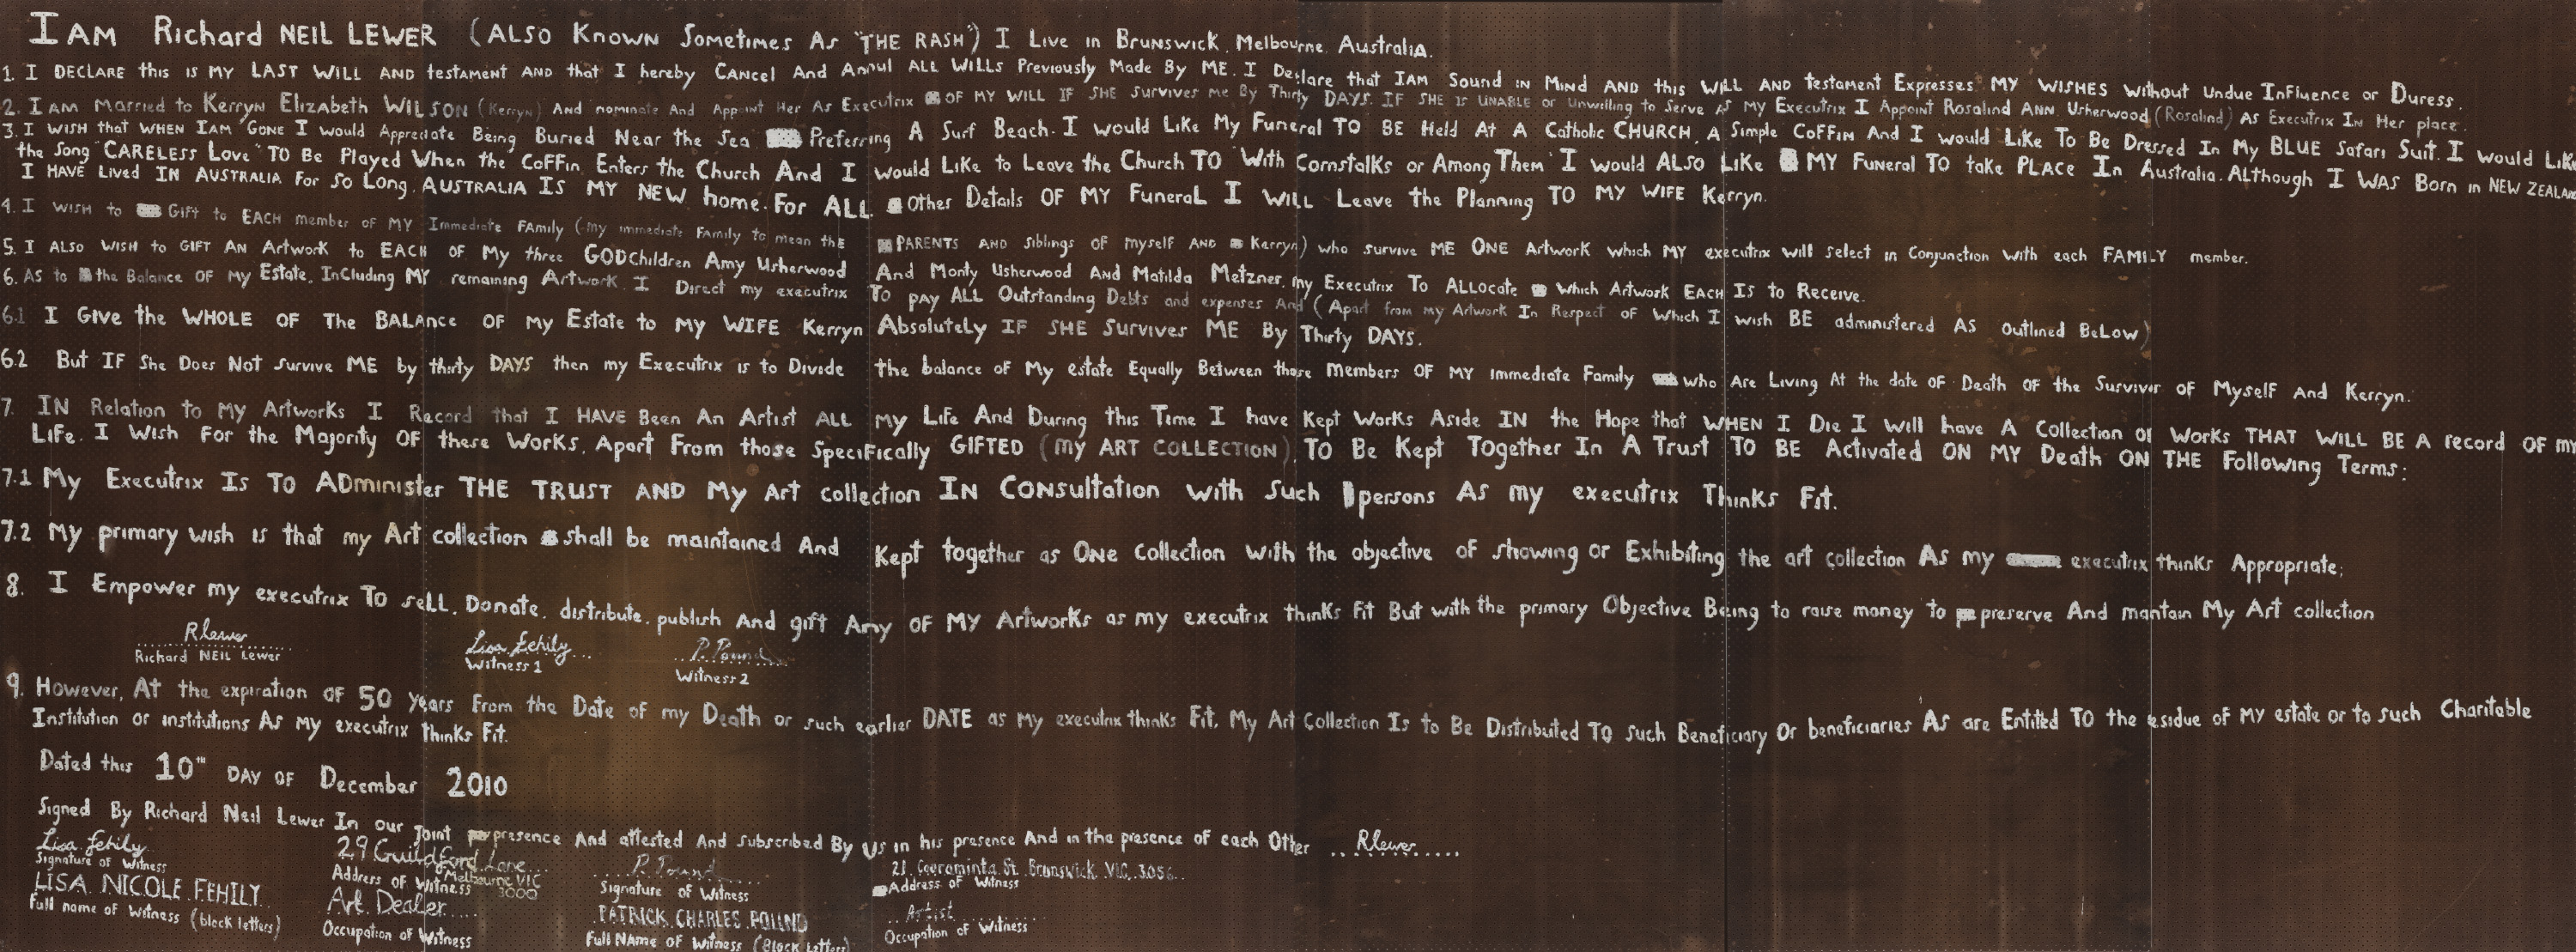 I AM Richard NEIL LEWER (ALSO Known Sometimes As "THE RASH") I Live in Brunswick, Melbourne, Australia.
1. I DECLARE this is MY LAST WILL AND testament AND that I hereby CANCEL And Annul ALL WILLS Previously Made By ME. I Declare that IAM Sound in Mind AND this WILL AND Testament Expresses MY WISHES Without Undue InFluence or Duress.
2. I AM Married to Kerryn Elizabeth WILSON (Kerryn) And nominate And Appoint Her As Executrix OF MY WILL IF SHE Survives Me By Thirty DAYS. IF SHE IS UNABLE or Unwilling to Serve As My Executrix I Appoint Rosalind ANN Usherwood (Rosalind) As Executrix In Her place.
3. I WISH that WHEN IAM GONE I would Appreciate Being Buried Near the Sea Preferring A Surf Beach. I would Like My Funeral TO BE Held At A Catholic CHURCH, A Simple Coffin And I would Like To Be Dressed In My BLUE Safari Suit. I would Like
the Song "CARELESS Love" TO Be Played When the Coffin Enters the Church And I would Like to Leave the Church TO "With Cornstalks or Among Them" I would ALSO Like MY Funeral TO take PLACE In Australia. Although I WAS Born in NEW ZEALAND
I HAVE Lived IN AUSTRALIA For So Long. AUSTRALIA IS MY NEW home. For ALL Other Details OF MY Funeral I WILL Leave the Planning TO MY WIFE Kerryn.
4. I WISH to Gift to EACH member of MY Immediate Family (my immediate Family to mean the PARENTS AND Siblings OF Myself AND Kerryn) who survive ME ONE Artwork which MY executrix will select in Conjunction With each FAMILY member.
5. I ALSO WISH to GIFT AN Artwork to EACH of My three GODChildren Amy Usherwood And Monty Usherwood And Matilda Metzner, my Executrix To Allocate Which Artwork EACH IS to Receive.
6. AS to the Balance OF My Estate, Including MY remaining Artwork. I Direct my executrix To pay ALL Outstanding Debts and expenses And (Apart from my Artwork In Respect of Which I wish BE administered AS outlined BeLow)
6.1 I Give the WHOLE OF The BALANCE OF My Estate to My WIFE Kerryn Absolutely IF SHE Survives ME By Thirty DAYS.
6.2 But IF She Does Not Survive ME by thirty DAYS then my Executrix is to Divide the balance of My estate Equally Between those Members OF MY immediate Family who Are Living At the date OF Death OF the Survivor of Myself And Kerryn.
7. IN Relation to My Artworks I Record that I HAVE Been An Artist ALL my Life And During this Time I have Kept Works Aside IN the Hope that WHEN I Die I Will have A Collection of Works THAT WILL BE A record OF my
Life. I Wish For the Majority OF these Works, Apart From those Specifically GIFTED (MY ART COLLECTION), TO Be Kept Together In A Trust TO BE Activated ON MY Death ON THE Following Terms:
7.1 My Executrix Is TO ADminister THE TRUST AND My Art collection IN CONSultation with Such persons As my executrix Thinks Fit.
7.2 My primary wish is that my Art collection shall be maintained And Kept together as One Collection With the objective of showing or Exhibiting the art collection As my executrix thinks Appropriate;
8. I Empower my executrix TO sell, Donate, distribute, publish And gift Any OF MY Artworks as my executrix thinks Fit But with the primary Objective Being to raise money to preserve And mantain My Art collection
Rlewer
Richard NEIL Lewer
Lisa Fehily
Witness 1
P. Pound
Witness 2
9. However, At the expiration of 50 years From the Date of my Death or such earlier DATE as My executrix thinks Fit, My Art Collection Is to Be Distributed TO such Beneficiary Or beneficiaries As are Entitled TO the esidue of MY estate or to such Charitable
Institution or institutions As My executrix thinks Fit.
Dated this 10th DAY OF December 2010
Signed By Richard Neil Lewer In our joint presence And attested And subscribed By Us in his presence And in the presence of each Other Rlewer
Lisa Fehily
Signature of Witness
29 Guildford Lane
Melbourne VIC
3000
Address of Witness
P. Pound
Signature of Witness
21, Cooraminta St. Brunswick. VIC. 3056
Address of Witness
LISA NICOLE FEHILY
Full name of Witness (block letters)
Art Dealer
Occupation of Witness
PATRICK CHARLES POUND
Full Name of Witness (Block Letters)
Artist
Occupation of Witness